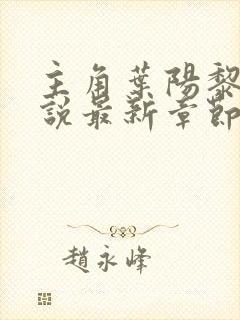 主角葉陽黎
說最新章節
趙永峰